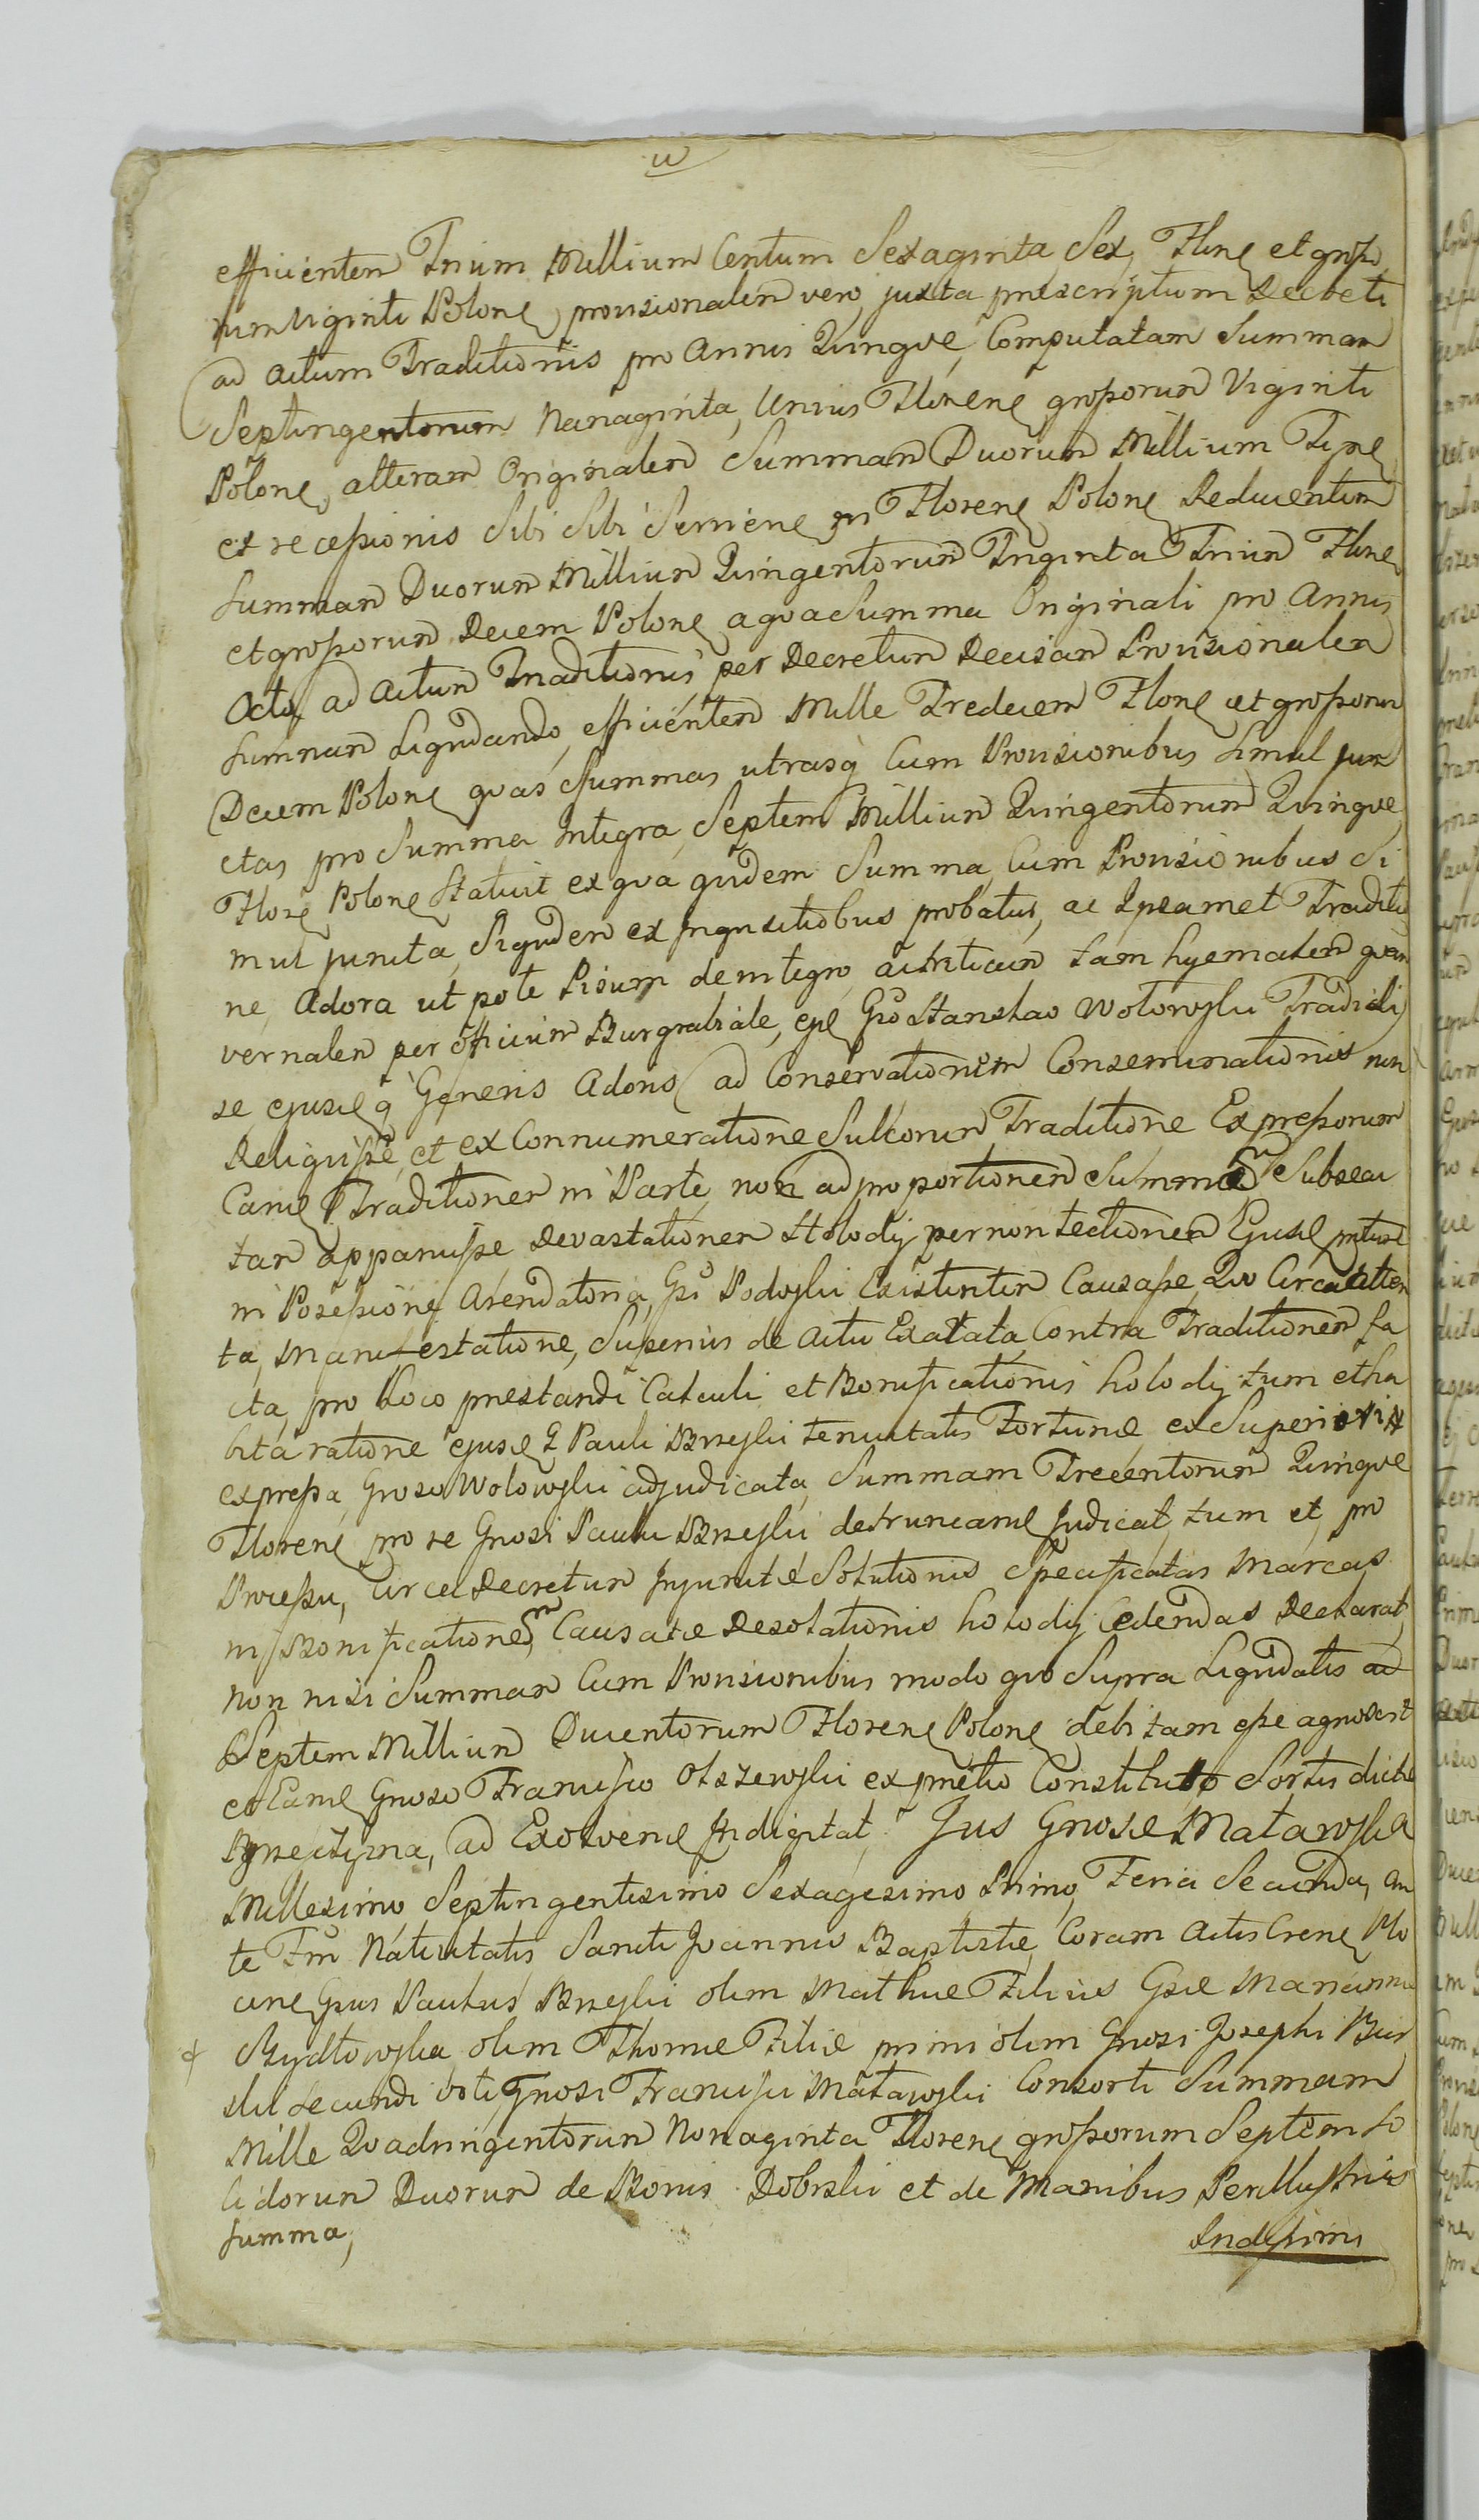 w
efficienten Trium Millium Centum Sexaginta Sex, Flne et grosso
rum Viginti Polone, provisionalem vero juxta prescriptum Decreti
ad actum Traditionis pro Annis Quinque Computatam Summam
Septingentorum Nanaginta, Unius Florene grossorum Viginti
Polone, alteram Originalem Summam Duorum Millium Tipe
ex recessionis Sibi Sibi Serviene in Florene Polone Reducentem
Summam Duorum Millium Quingentorum Triginta Trium Flne
et grossorum Decem Polone a qva Summa Originali pro Annis
Octo, ad actum Traditionis per Decretum Decisam Provisionalem
Summam Liqvidando, efficientem Mille Tredecem Flone et grossorum
Decem Polone qvas Summas utrasq Cum Provisionibus Simul jun
ctas pro Summa Integra, Septem Millium Quingentorum Qvinqve
Flore Polone Statuit ex qva qvidem Summa, Cum Provisionibus Si
mul juncta, Siqvidem ex Inqvisitiobus probatur, ac Ipsamet Traditio
ne, Adora ut pote Pisum de integro, ac triticum tam hyemalem qvam
vernalem per officium Burgrabiale, eple Gso Stanslao Wolowski Tradidi
se, ejusdq Generis Adoris ad Conservationem Conseminationis non
Reliquisse, et ex Connumeratione Sulcorum Traditione Expressorum
Camd Traditionem in Parte, non ad proportionem Summa Subsecu
tam apparuisse, Devastationem Hlody per non tectionem Ejusd
in Posessione Arendatoria, Gsi Podoski Existentem Causasse, Quo Circa
ta, Manifestatione, Superius de Actu Exatata, Contra Traditionem fa
cta, pro Loco prestandi Calculi et Bonificationis holody tum et ha
bita ratione ejusd G Pauli Brzeski tenuitatis Fortune, ex Superiorix
expressa Groso Wolowski adjudicata, Summam Trecentorum Quinqve
Florene, pro re Gnosi Pauli Brzeski detruncand judicat, tum et pro
Processu, circa Decretum Injuncte Solutionis Specificatas Marcas
in Bonificationem Causate Desolationis holody Cedendas Declarat,
non nisi Summam Cum Provisionibus modo qvo Supra Liqvidatis ad
Septem Millium Ducentorum Florene Polone debitam esse agnoscit
et Eamd Gnoso Francisco Olszewski ex pretio Constituto Sortis dicte
ad Exolvend Indigitat. Jus Gnose Matawska
Millesimo Septingentisimo Sexagesimo Primo, Feria Secunda, an
te Fm Nativitatis Sancti Joannis Baptiste, Coram Actis Crene Plo
cene Gsus Paulus Brzeski olim Mathie Filius Gsd Marianne
Bydlowska olim Thome Filie primi olim Gnosi Josephi Bur
ski secundi voti Gnosi Francisci Matawski Consorti Summam
Mille Qvadringentorum Nonaginta Florene grossorum Septem So
lidorum Duorum de Bonis Dobrski et de Manibus Perillustris
Summa,